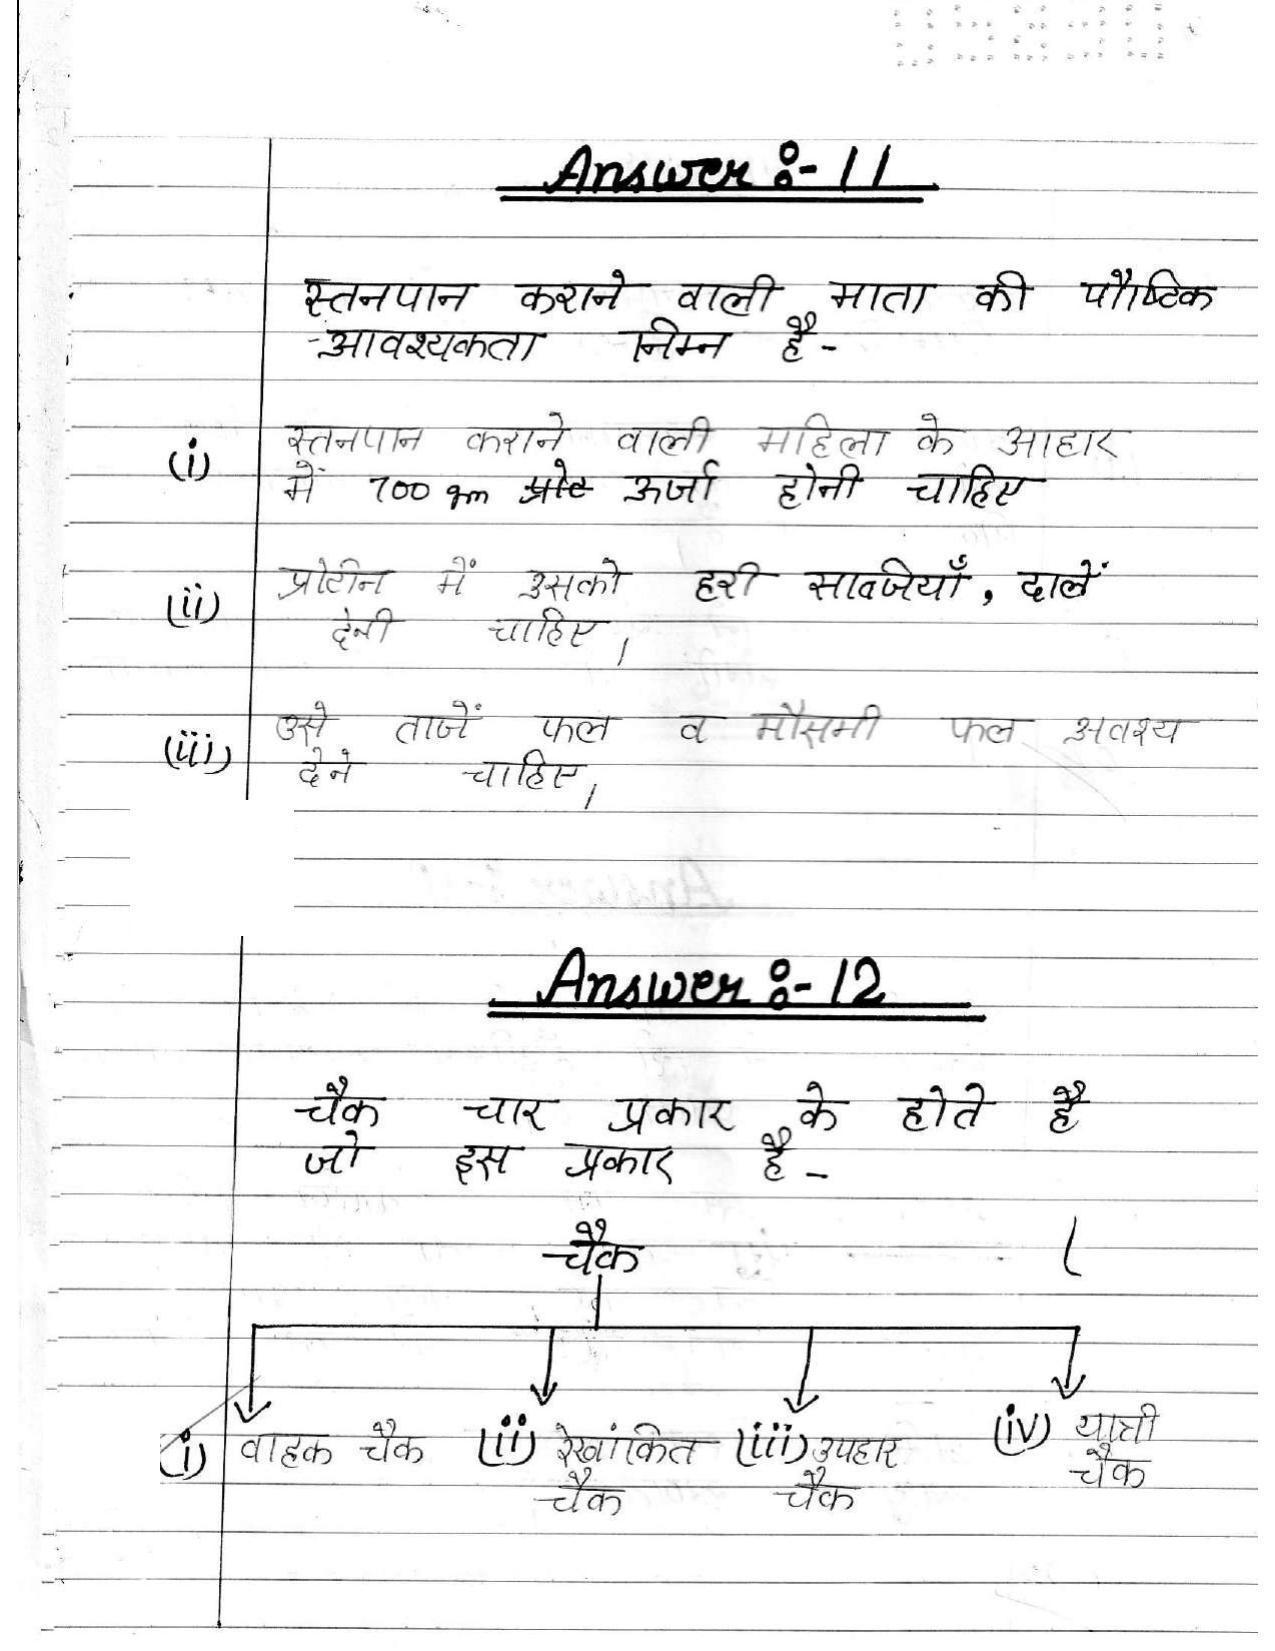 Answer :- 11
स्तनपान कराने वाली माता की पौष्टिक
आवश्यकता निम्न है -
(i) स्तनपान कराने वाली महिला के आहार
में 700 gm ऊर्जा होनी चाहिए
(ii) प्रोटीन में उसको हरी सब्जियाँ, दालें
देनी चाहिए।
(iii) उसे ताजें फल व मौसमी फल अवश्य
देने चाहिए।
Answer :- 12
चैक चार प्रकार के होते है
जो इस प्रकार है -
चैक
(i) वाहक चैक (ii) रेखांकित (iii) उपहार (iv) यात्री
चैक चैक चैक